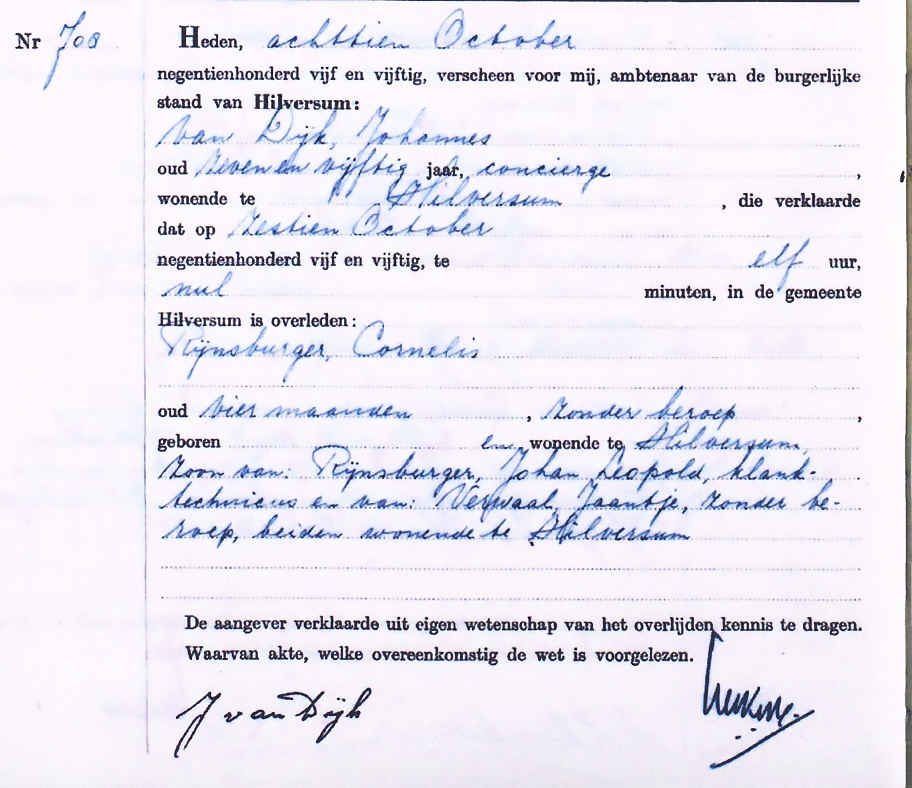 Nr 708
Heden, achttien October
negentienhonderd vijf en vijftig, verscheen voor mij, ambtenaar van de burgerlijke
stand van Hilversum:
van Dijk, Johannes
oud zevenen vijftig jaar, concierge ,
wonende te Hilversum , die verklaarde
dat op zestien October
negentienhonderd vijf en vijftig, te elf uur,
nul minuten, in de gemeente
Hilversum is overleden:
Rijnsburger, Cornelis
oud vier maanden , zonder beroep ,
geboren en wonende te Hilversum,
zoon van: Rijnsburger, Johan Leopold, klank-
technicus en van: Verwaal, Jaantje, zonder be-
roep, beiden wonende te Hilversum
De aangever verklaarde uit eigen wetenschap van het overlijden kennis te dragen.
Waarvan akte, welke overeenkomstig de wet is voorgelezen.
J van Dijk